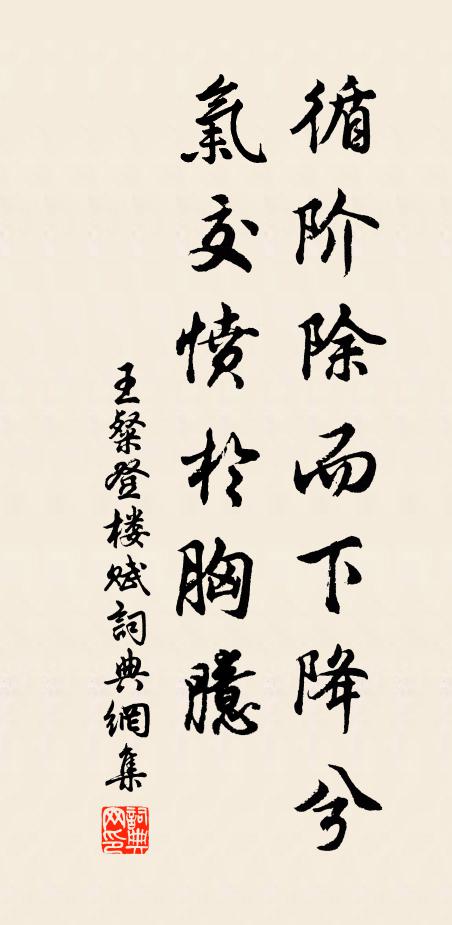 循阶除而下降兮
氣交憤於胸臆
王粲登楼赋詞典網集
詞典网印